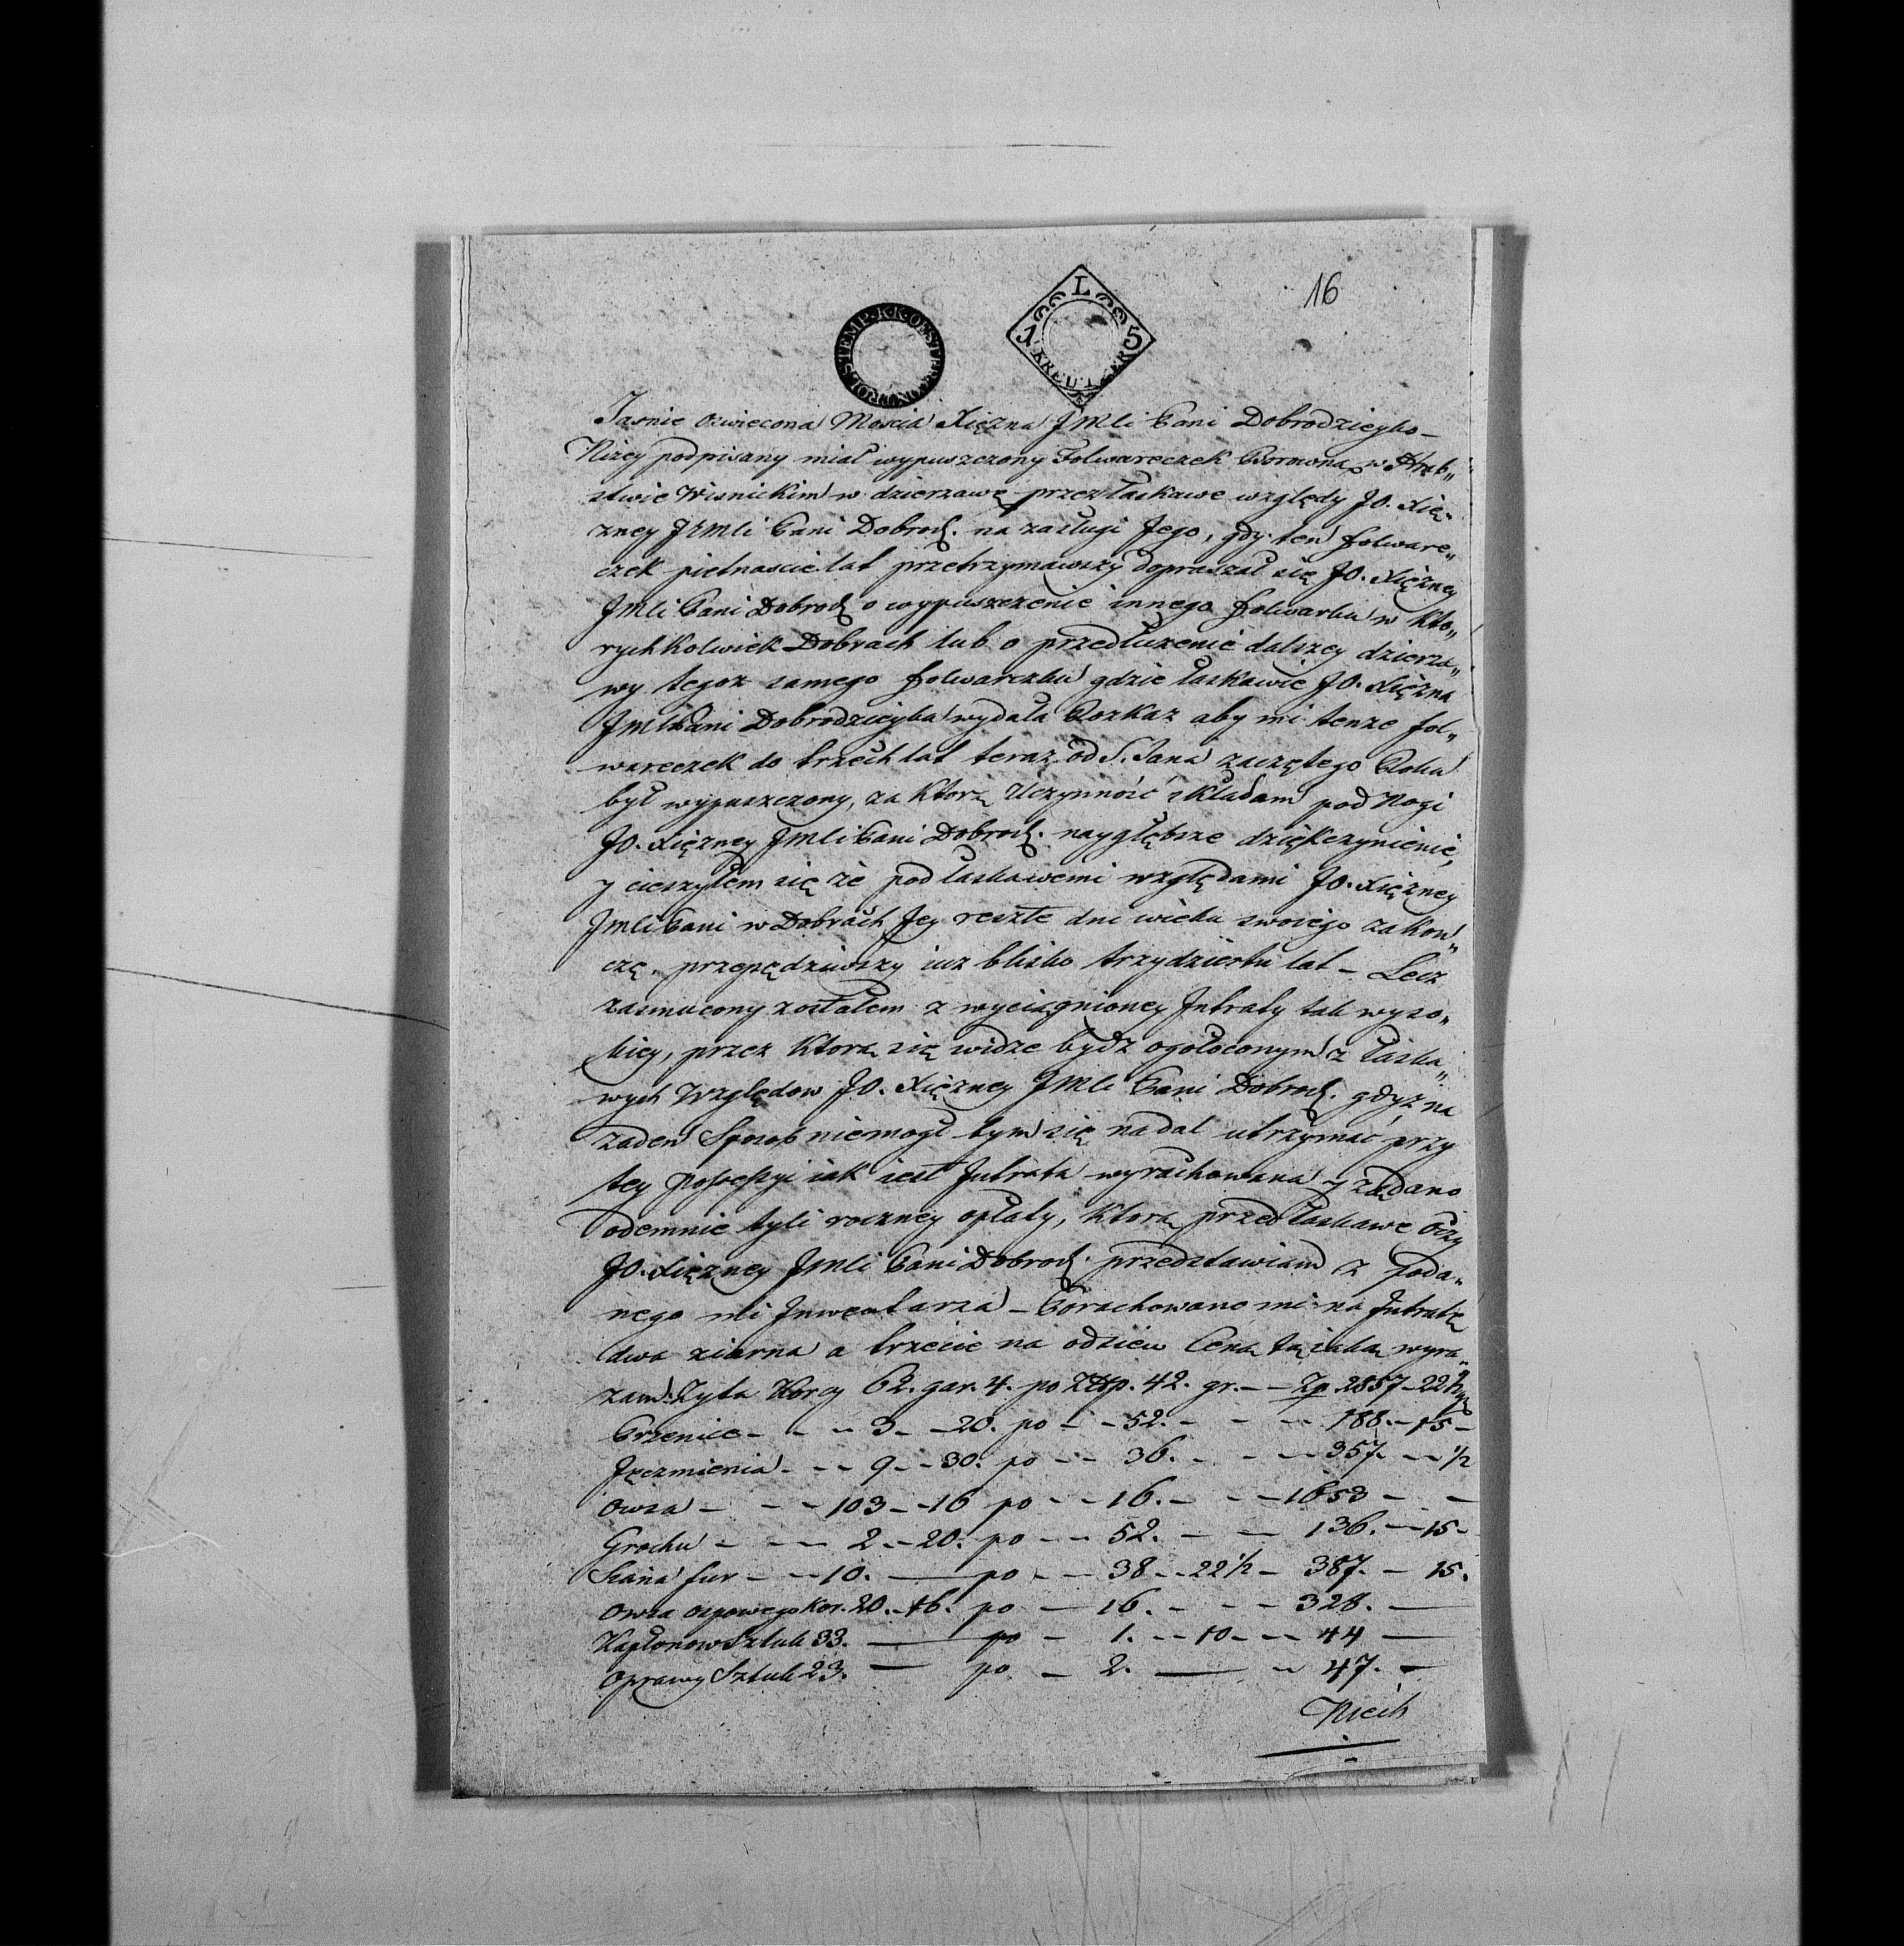 16
L
15
KREUTZER
STEMP. K. K. OESTER. CONTROL
Jasnie oswiecona Moscia Xięzna JMci Pani Dobrodzieyko –
Niżey podpisany miał wypuszczony Folwareczek Borowna w Hrab„
stwie Wisnickim w dzierzawę przez łaskawe względy JO. Xię„
żney JEMCi Pani Dobrodz. na zasługi Jego, gdy ten folware„
czek pietnascie lat przetrzymawszy dopraszał się JO. Xiężney
JMCi Pani Dobrodz o wypuszczenie innego folwarku w kto„
rychkolwiek Dobrach lub o przedłuzenie dalszey dzierza„
wy tegoz samego folwarczku gdzie łaskawie JO. Xiężna
JMCi Pani Dobrodzieyka wydała Rozkaz aby mi tenze fol„
wareczek do trzech lat teraz od S. Jana zaczętego Roku
był wypuszczony, za ktorą Uczynność składam pod Nogi
JO. Xiężney JMCi Pani Dobrodz. naygłębsze dziękczynienie,
y cieszyłem się że pod łaskawemi względami JO. Xiężney
JMCi Pani w Dobrach Jey reszte dni wieku swoiego zakoń„
czę, przepędziwszy iuz blisko trzydziestu lat – Lecz
zasmucony zostałem z wyciągnioney Jntraty tak wyso„
kiey, przez ktorą się widze bydz ogołoconym z łaska„
wych Względow JO. Xiężney JMCi Pani Dobrodz. gdyż na
zaden Sposob niemogł bym się nadal utrzymać przy
tey possessyi iak iest Jntrata wyrachowana y ządano
odemnie tyli roczney opłaty, ktorą przed łaskawe Oczy
JO. Xiężney JMCi Pani Dobrodz. przedstawiam z poda„
nego mi Jnwentarza – Porachowano mi na Jntratę
dwa ziarna a trzecie na odsiew Ceną tą iaką wyra„
zam. Zyta Korcy 62. gar. 4. po Złp. 42. gr. – – Zp. 2857 – 22 1/2
Przenice – – – 3 – – 20. po – – 52. – – – – 188. – 15 –
Jęczmienia – – – 9 – – 30. po – – 36. – – – – 357. – – 1/2
Owsa – – – – 103 – – 16 po – – 16. – – – 1653 – –
Grochu – – – – 2 – – 20. po – – 52. – – – 136. – 15 –
Siana fur – – – 10. – po – – 38 – – 22 1/2 – 387. – 15.
Owsa osypowego Kor. 20. – 16. po – 16. – – – 328. –
Kapłonow Sztuk 33. – po – 1. – – 10 – – – 44 –
Oprawy Sztuk 23. – po – 2. – – 47. –
Niech